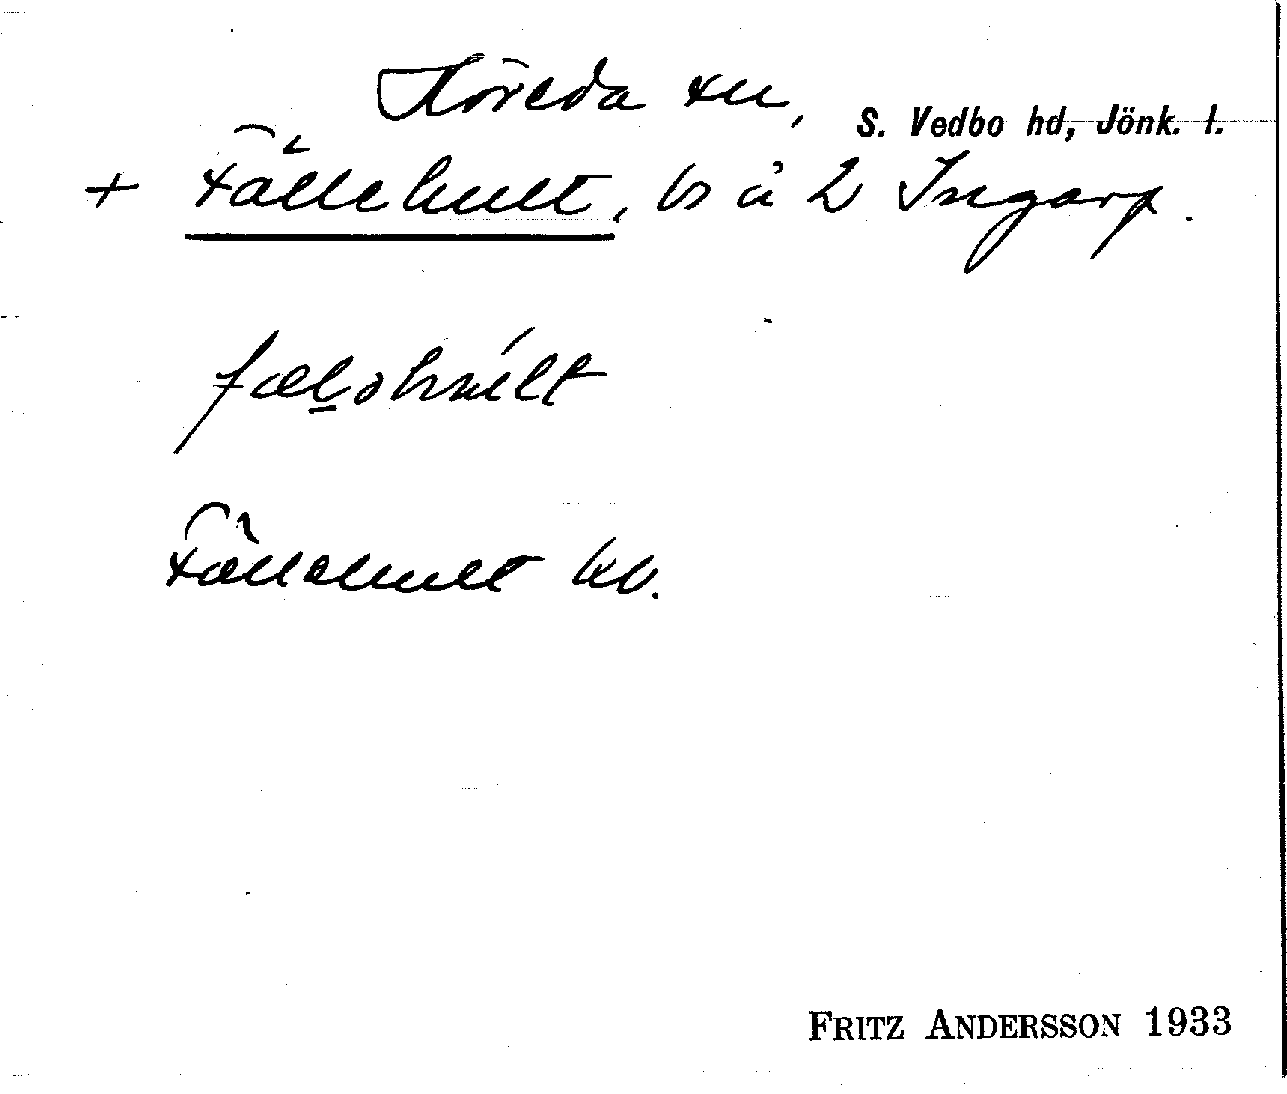 Höreda sn, S. Vedbo hd, Jönk. l.
+ Fällehult, bs å 2 Ingarp.
fælohult
Fällehult kb.
FRITZ ANDERSSON 1933